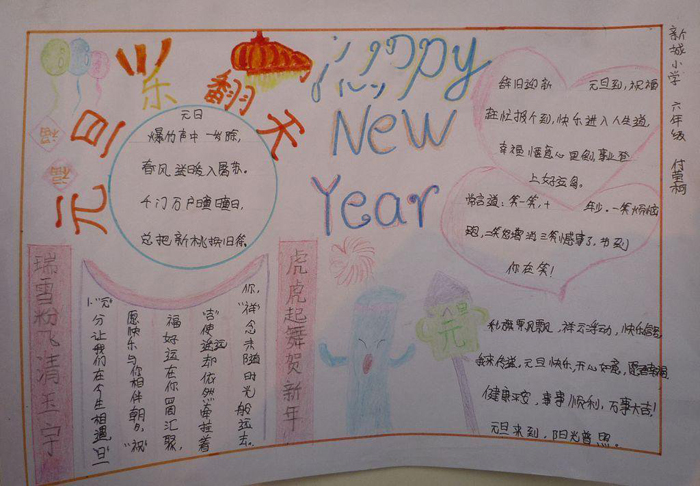 元旦乐翻天
Happy
New
Year
新城小学 六年级 付
福
福
元日
爆竹声中一岁除,
春风送暖入屠苏。
千门万户曈曈日,
总把新桃换旧符。
辞旧迎新 元旦到,祝福
赶忙报个到,快乐进入人生道,
幸福惬意心里刨,事业登
上好运高。
常言道:笑一笑,十 年少,一笑烦恼
跑,二笑怒 消 三笑憾事了,节到
你在笑!
瑞雪粉飞清玉宇
虎虎起舞贺新年
你,"祥"念未随时光般远去。
"吉"使遥远却依然牵挂着
福好运在你四周汇聚,
愿快乐与你相伴朝夕,"祝"
小"元"分让我们在今生相遇,"旦"
元
祥云浮动,快乐
元旦快乐,开心如意,
健康平安,事事顺利,万事大吉!
元旦来到,阳光普照。